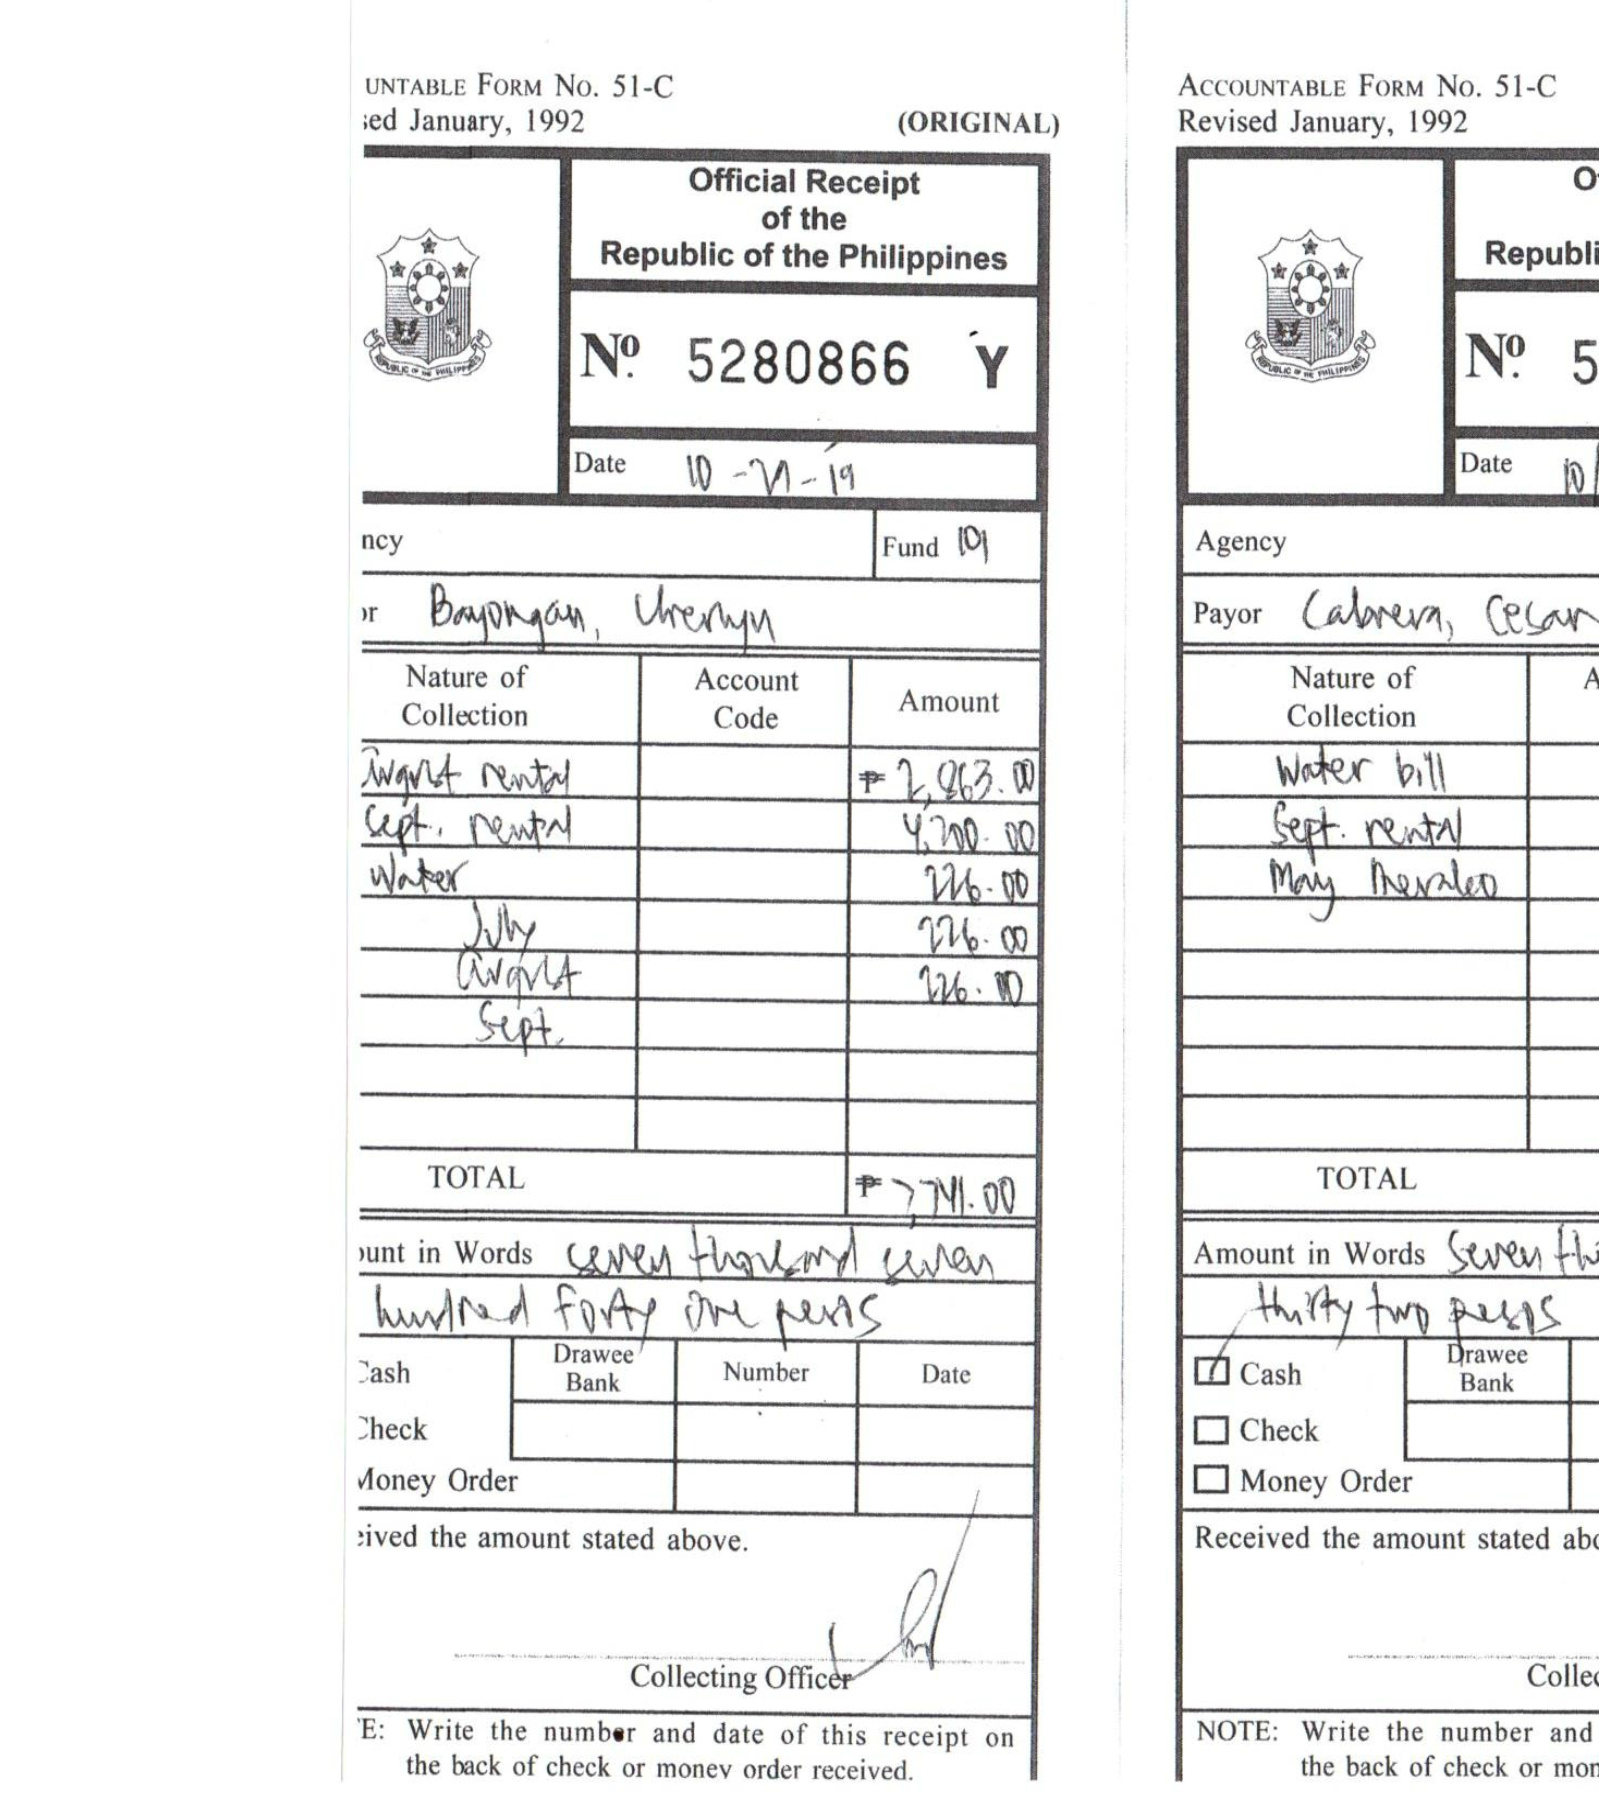 UNTABLE FORM No. 51-C
sed January, 1992
(ORIGINAL)
Official Receipt
of the
Republic of the Philippines
REPUBLIC OF THE PHILIPPINES
Nº. 5280866 Y
Date 10-21-19
ncy
Fund 101
or Bayongan, Cherlyn
Nature of
Collection
Account
Code
Amount
August rental ₱ 2,863.00
Sept. rental 4,200.00
Water 226.00
July 226.00
August 226.00
Sept.
TOTAL ₱ 7,741.00
ount in Words seven thousand seven
hundred forty one pesos
Cash
Drawee
Bank
Number
Date
Check
Money Order
eived the amount stated above.
Collecting Officer
E: Write the number and date of this receipt on
the back of check or money order received.
ACCOUNTABLE FORM No. 51-C
Revised January, 1992
Of
Republi
REPUBLIC OF THE PHILIPPINES
Nº. 5
Date 10/
Agency
Payor Cabrera, Cesar
Nature of
Collection
A
Water bill
Sept. rental
May Meralco
TOTAL
Amount in Words Seven th
thirty two pesos
Cash
Drawee
Bank
Check
Money Order
Received the amount stated abo
Collec
NOTE: Write the number and
the back of check or mon